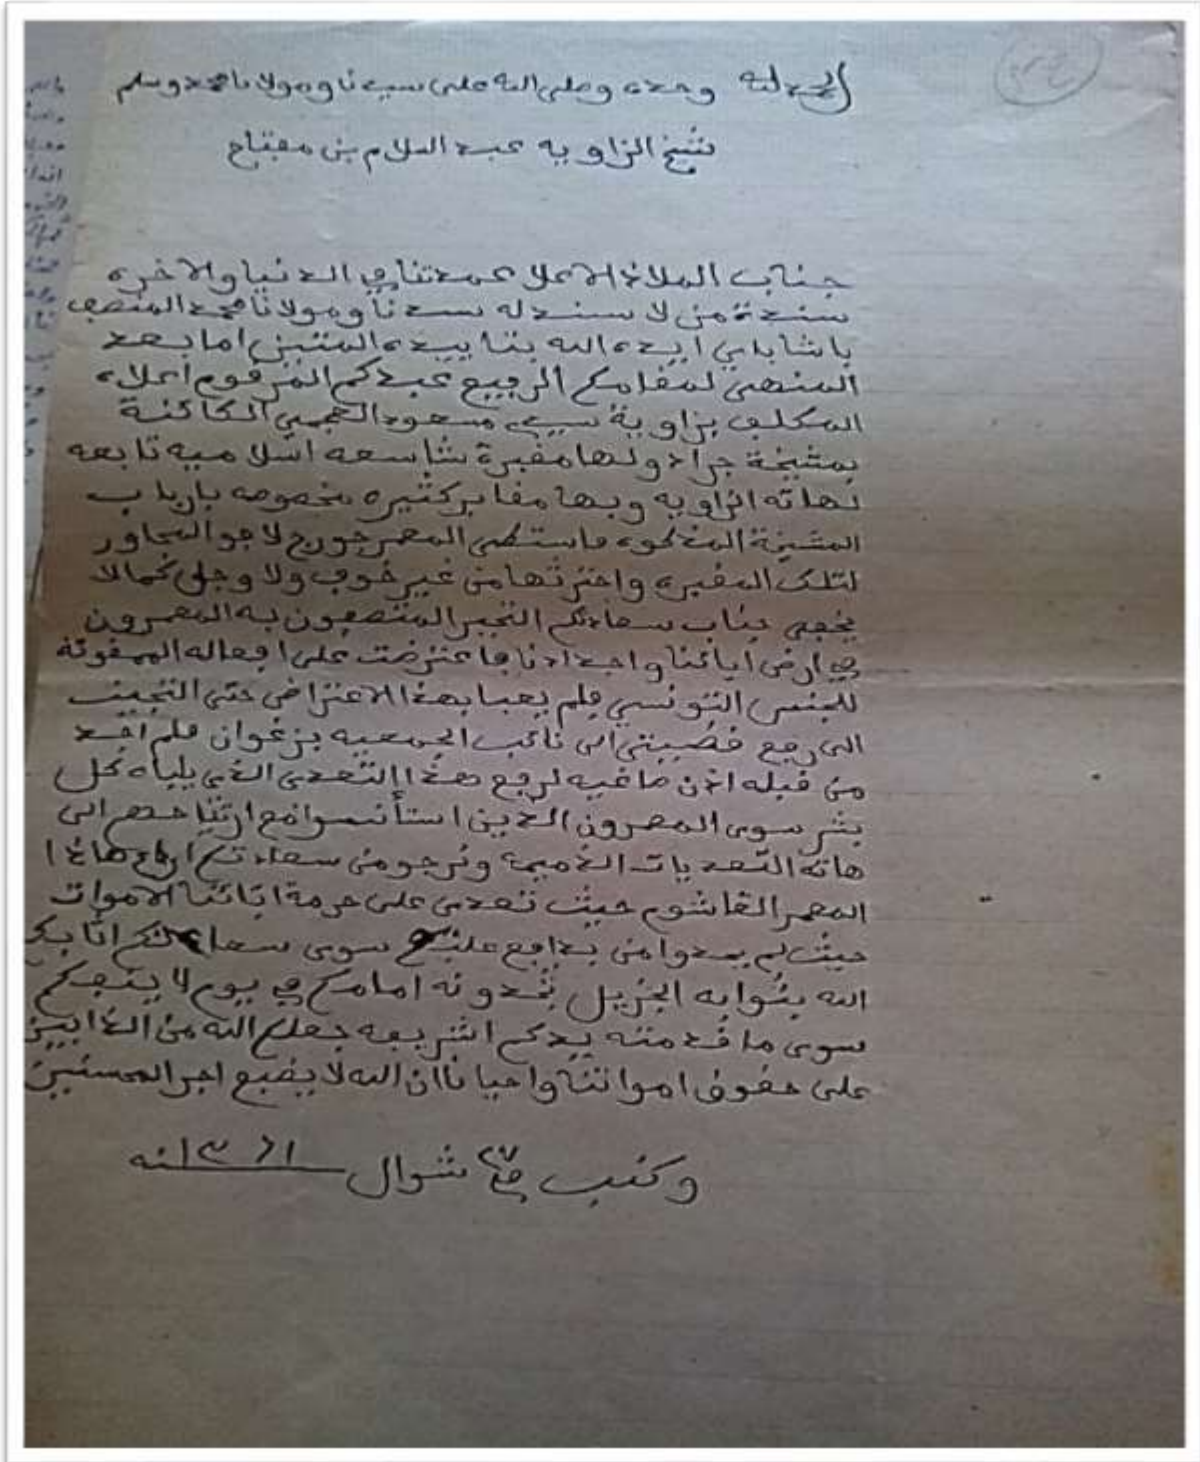 الحمد لله وحده وصلى الله على سيدنا ومولانا محمد وسلم
شيخ الزاويه عبد السلام بن مفتاح
جناب الملاذ الاعلا عمدتنا في الدنيا والاخره
سندة من لا سند له سيدنا ومولانا محمد المنصف
باشا باي ايده الله بتاييده المتين اما بعد
المنهى لمقامكم الرفيع عبدكم المرقوم اعلاه
المكلف بزاوية سيدي مسعود العجمي الكائنة
بمشيخة جراد ولها مقبرة شاسعه اسلاميه تابعه
لهاته الزاويه وبها مقابر كثيره مخصوصه بارباب
المشيخة المذكوره فاستظمى المعمر جورج لافو المجاور
لتلك المقبره واحترثها من غير خوف ولا وجل كما لا
يخفى جناب سعادتكم التجبر المتصفون به المعمرون
في ارض ابائنا واجدادنا فاعترضت على افعاله الممقوتة
للجنس التونسي فلم يعبا بهذا الاعتراض حتى التجيت
الى رفع قضيتي الى نائب الجمعيه بزغوان فلم اجد
من قبله اذن صاغيه لرفع هذا التعدي الذي يلباه كل
بشر سوى المعمرون الذين استأنسوا مع ارتياحهم الى
هاته التعديات الذميمة ونرجو من سعادتكم هاذا
المعمر الغاشوم حيث تعدى على حرمة ابائنا الاموات
حيث لم يجدوا من يدافع عليهم سوى سعادتكم اثابكم
الله بثوابه الجزيل تجدونه امامكم في يوم لا ينفعكم
سوى ما قدمته يدكم الشريفه جعلكم الله من الذابين
على حقوق امواتنا واحيانا ان الله لا يضيع اجر المحسنين
وكتب في ٢٧ شوال ١٣٦١نه